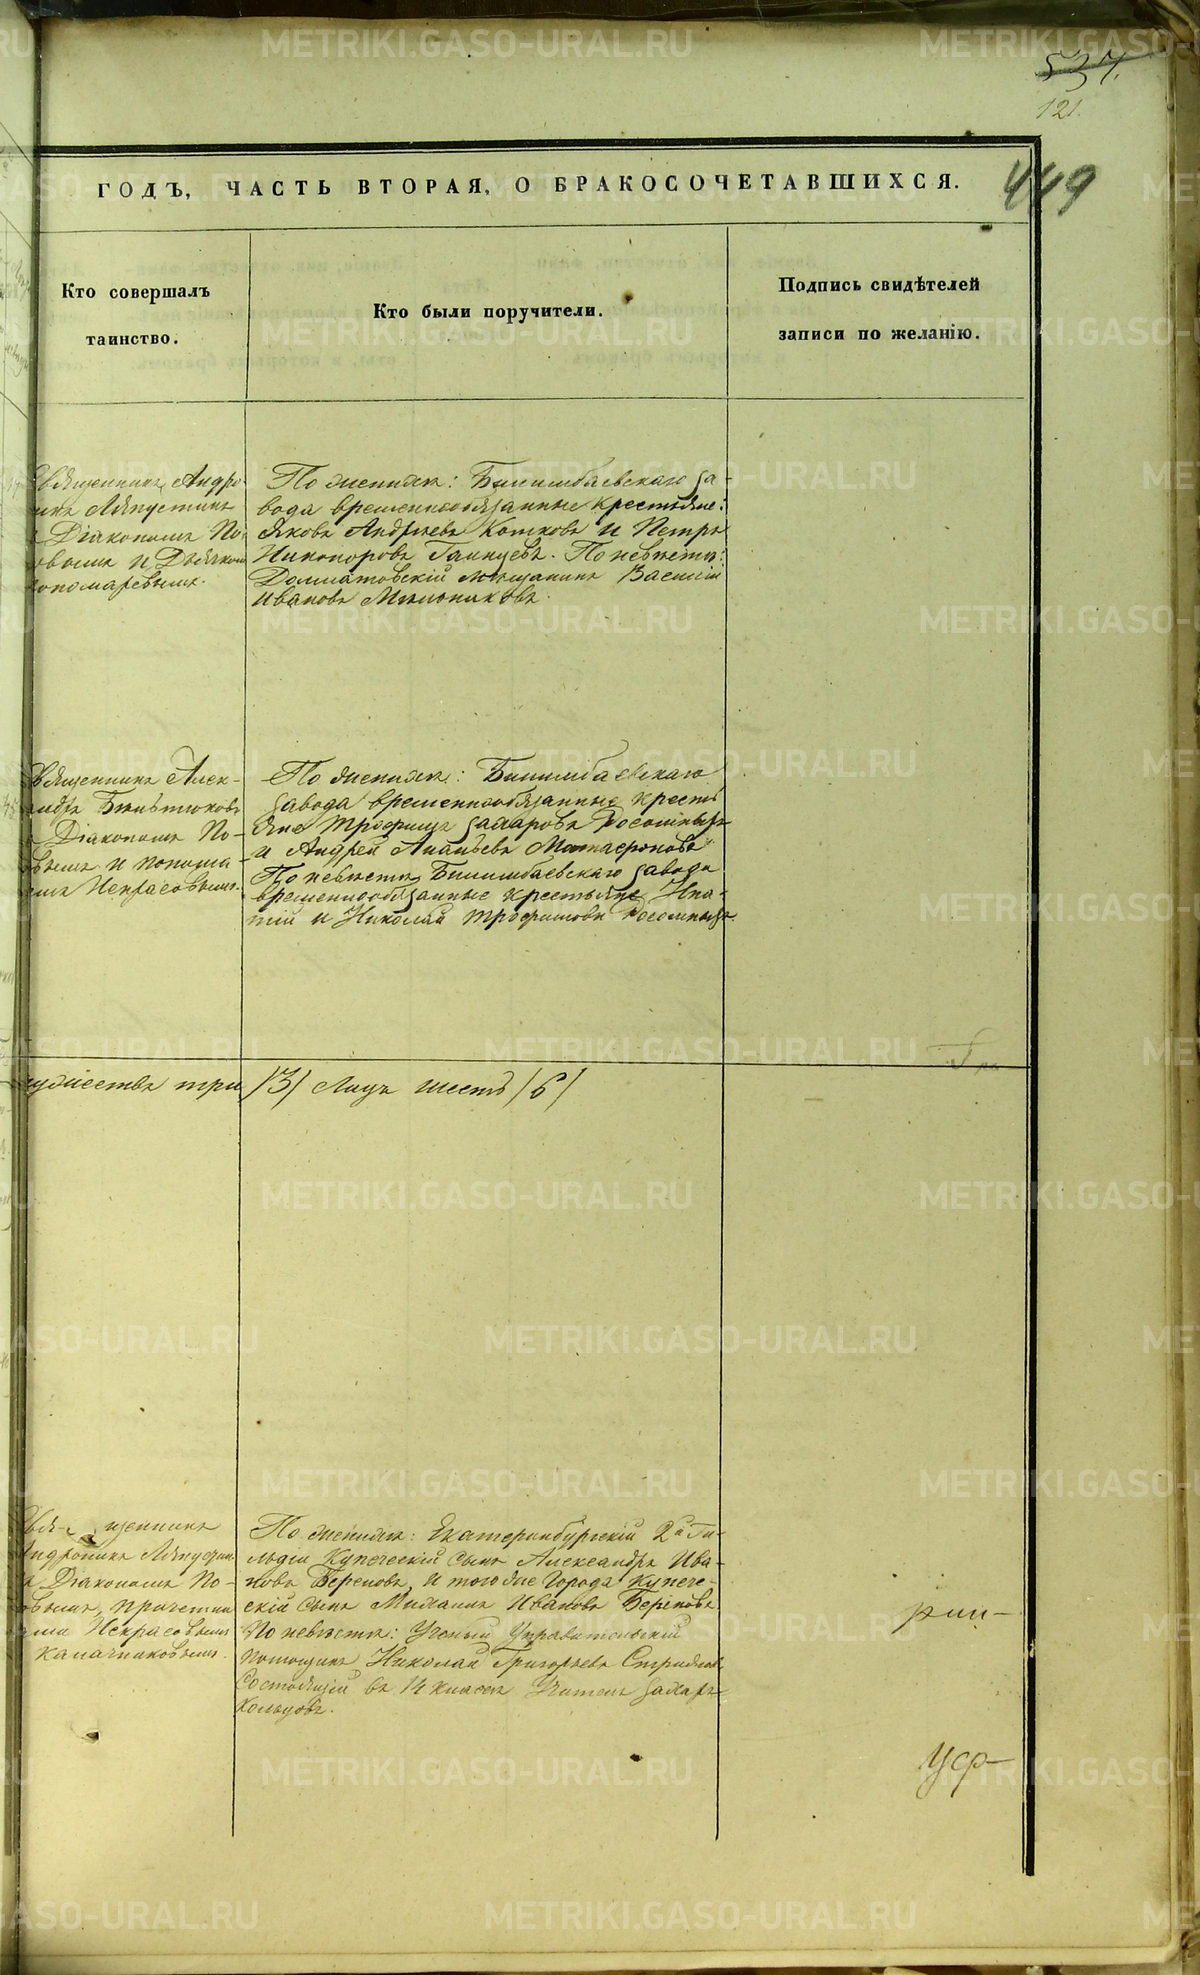 537.
121.
449
ГОДЪ, ЧАСТЬ ВТОРАЯ, О БРАКОСОЧЕТАВШИХСЯ.
Кто совершалъ
таинство.
Кто были поручители.
Подпись свидѣтелей
записи по желанію.
Священникъ Андро-
никъ Ляпустинъ
Діакономъ По-
и Дьячком
Пономаревымъ.
По женихѣ: Билимбаевскаго за-
вода временнообязанные крестьяне:
Яковъ Андреевъ Котковъ и Петръ
Никифоровъ Галицевъ. По невѣстѣ:
Долматовскій мѣщанинъ Василій
Ивановъ Мѣльниковъ.
Священникъ Алек-
андръ
Діакономъ По-
вымъ и понома-
емъ Некрасовымъ.
По женихѣ: Билимбаевскаго
завода временнообязанные кресть
яне Трофимъ Захаровъ
и Андрей Ананьевъ
По невѣстѣ Билимбаевскаго завода
временнообязанные крестьяне Ипа-
тій и Николай Трофимовы
три /3/ Лицъ шесть /6/
Свя-щенникъ
Андроникъ Ляпустин
Діакономъ По-
вымъ, причетни
ами Некрасовымъ
Калачниковымъ.
По женихѣ: Екатеринбургскій 2й Ги-
льдіи Купеческій сынъ Александръ Ива-
новъ Береновъ, и того же Города купече-
скій сынъ Михаилъ Ивановъ Береновъ.
По невѣстѣ: Ученый Управительскій
помощникъ Николай Григорьевъ
Состоящій въ 14 классѣ Учитель Захаръ
Кольцовъ.
рин-
Уф-